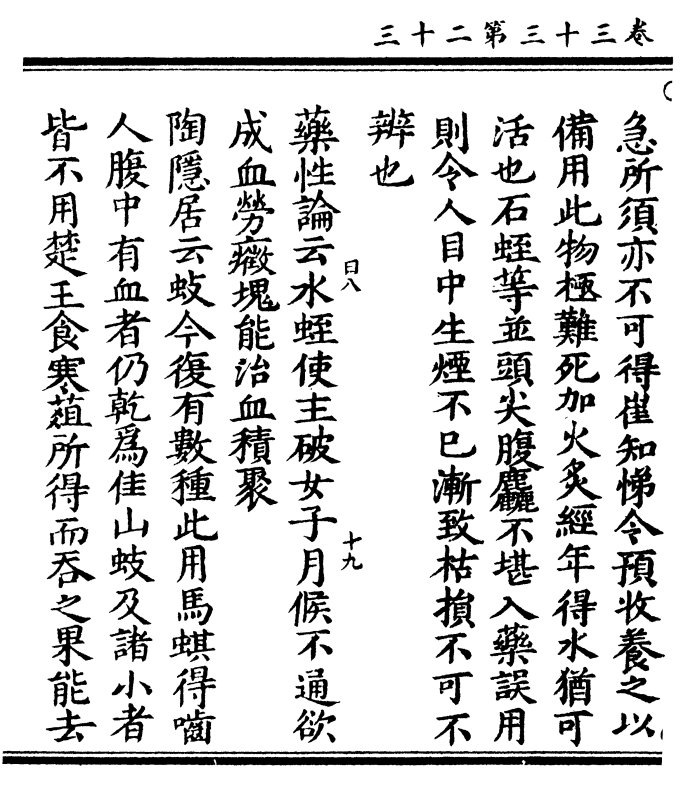 卷三十三第二十三
急所須亦不可得崔知悌令預收養之以
備用此物極難死加火炙經年得水猶可
活也石蛭等並頭尖腹麤不堪入藥誤用
則令人目中生煙不已漸致枯損不可不
辨也
藥性論云水蛭使主破女子月候不通欲
日八
十九
成血勞癥塊能治血積聚
陶隱居云蚑今復有數種此用馬蜞得嚙
人腹中有血者仍乾為佳山蚑及諸小者
皆不用楚王食寒菹所得而吞之果能去